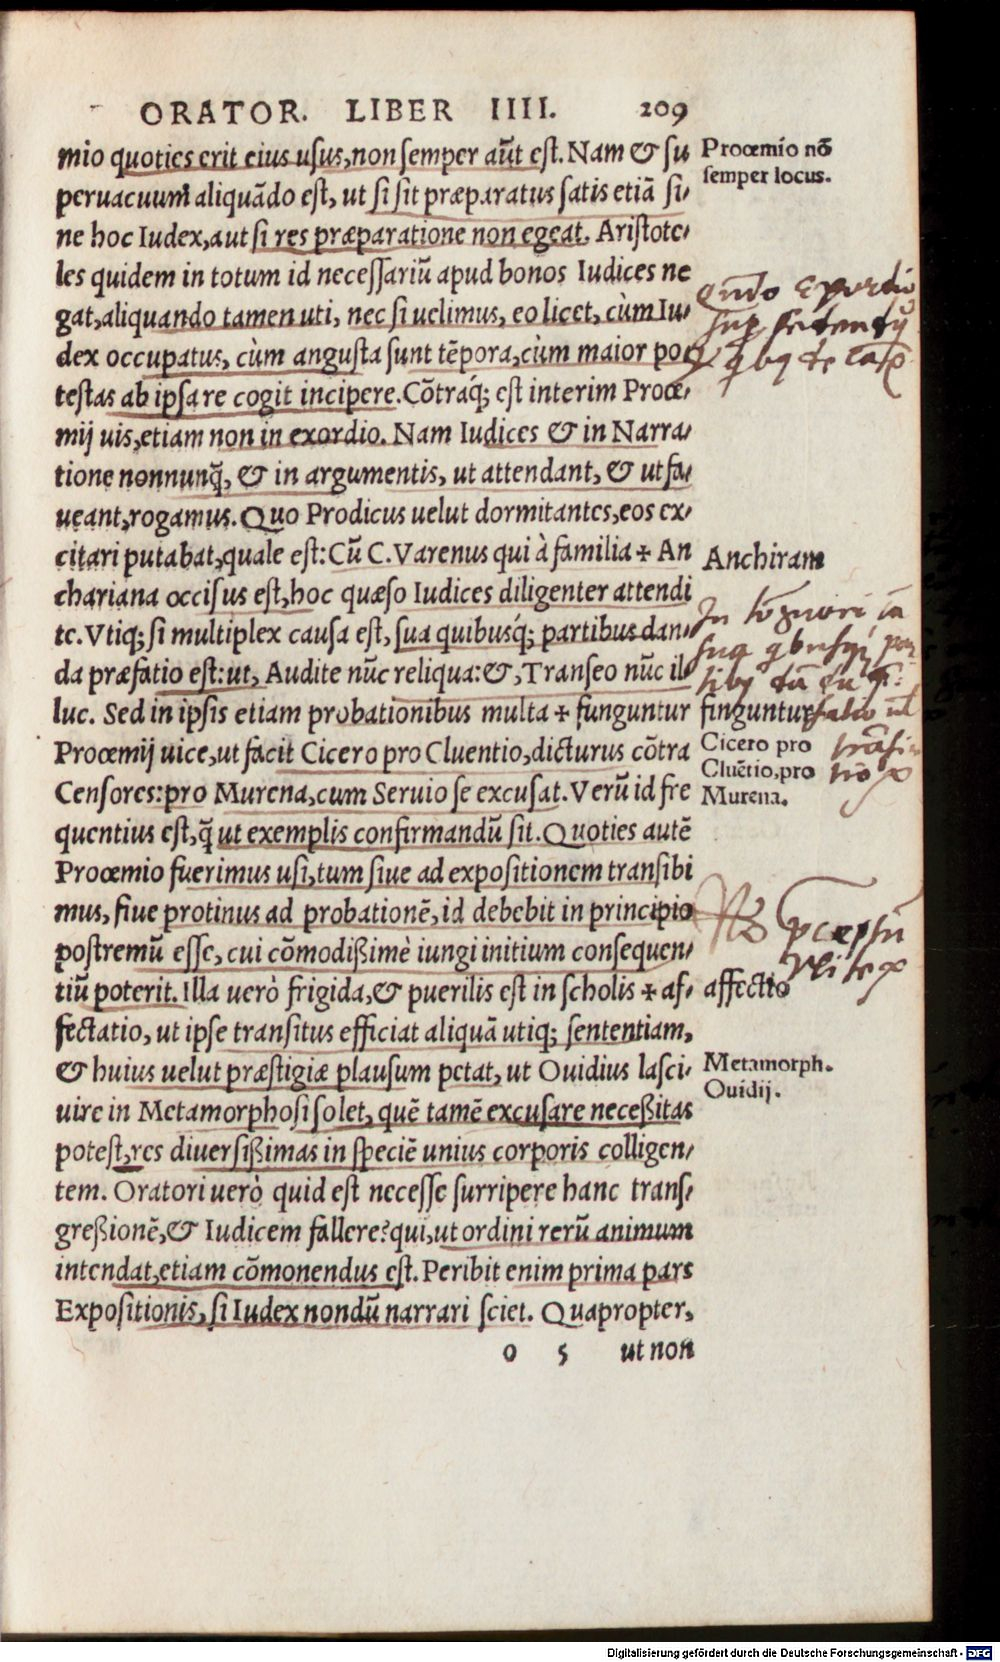 ORATOR. LIBER IIII. 209
mio quoties erit eius usus, non semper aūt est. Nam & su
peruacuum aliquādo est, ut si sit præparatus satis etiā si⸗
ne hoc Iudex, aut si res præparatione non egeat. Aristote⸗
les quidem in totum id necessariū apud bonos Iudices ne
gat, aliquando tamen uti, nec si uelimus, eo licet, cùm Iu⸗
dex occupatus, cùm angusta sunt tēpora, cùm maior po⸗
testas ab ipsa re cogit incipere. Cōtraq́; est interim Prooe⸗
mij uis, etiam non in exordio. Nam Iudices & in Narra⸗
tione nonnunq̄, & in argumentis, ut attendant, & ut fa⸗
ueant, rogamus. Quo Prodicus uelut dormitantes, eos ex⸗
citari putabat, quale est: Cū C. Varenus qui à familia + An
chariana occisus est, hoc quæso Iudices diligenter attendi
te. Vtiq; si multiplex causa est, sua quibusq́; partibus dan⸗
da præfatio est: ut, Audite nūc reliqua: &, Transeo nūc il⸗
luc. Sed in ipsis etiam probationibus multa + funguntur
Prooemij uice, ut facit Cicero pro Cluentio, dicturus cōtra
Censores: pro Murena, cum Seruio se excusat. Verū id fre
quentius est, q̄ ut exemplis confirmandū sit. Quoties autē
Prooemio fuerimus usi, tum siue ad expositionem transibi
mus, siue protinus ad probationē, id debebit in principio
postremū esse, cui cōmodißimè iungi initium consequen⸗
tiū poterit. Illa uerò frigida, & puerilis est in scholis + af⸗
fectatio, ut ipse transitus efficiat aliquā utiq; sententiam,
& huius uelut præstigiæ plausum petat, ut Ouidius lasci⸗
uire in Metamorphosi solet, quē tamē excusare neceßitas
potest, res diuersißimas in speciē unius corporis colligen⸗
tem. Oratori uerò quid est necesse surripere hanc trans⸗
greßionē, & Iudicem fallere? qui, ut ordini rerū animum
intendat, etiam cōmonendus est. Peribit enim prima pars
Expositionis, si Iudex nondū narrari sciet. Quapropter,
o 5 ut non
Prooemio nō
semper locus.
Anchiram
finguntur
Cicero pro
Cluētio, pro
Murena.
affectio
Metamorph.
Ouidij.
Digitalisierung gefördert durch die Deutsche Forschungsgemeinschaft - DFG